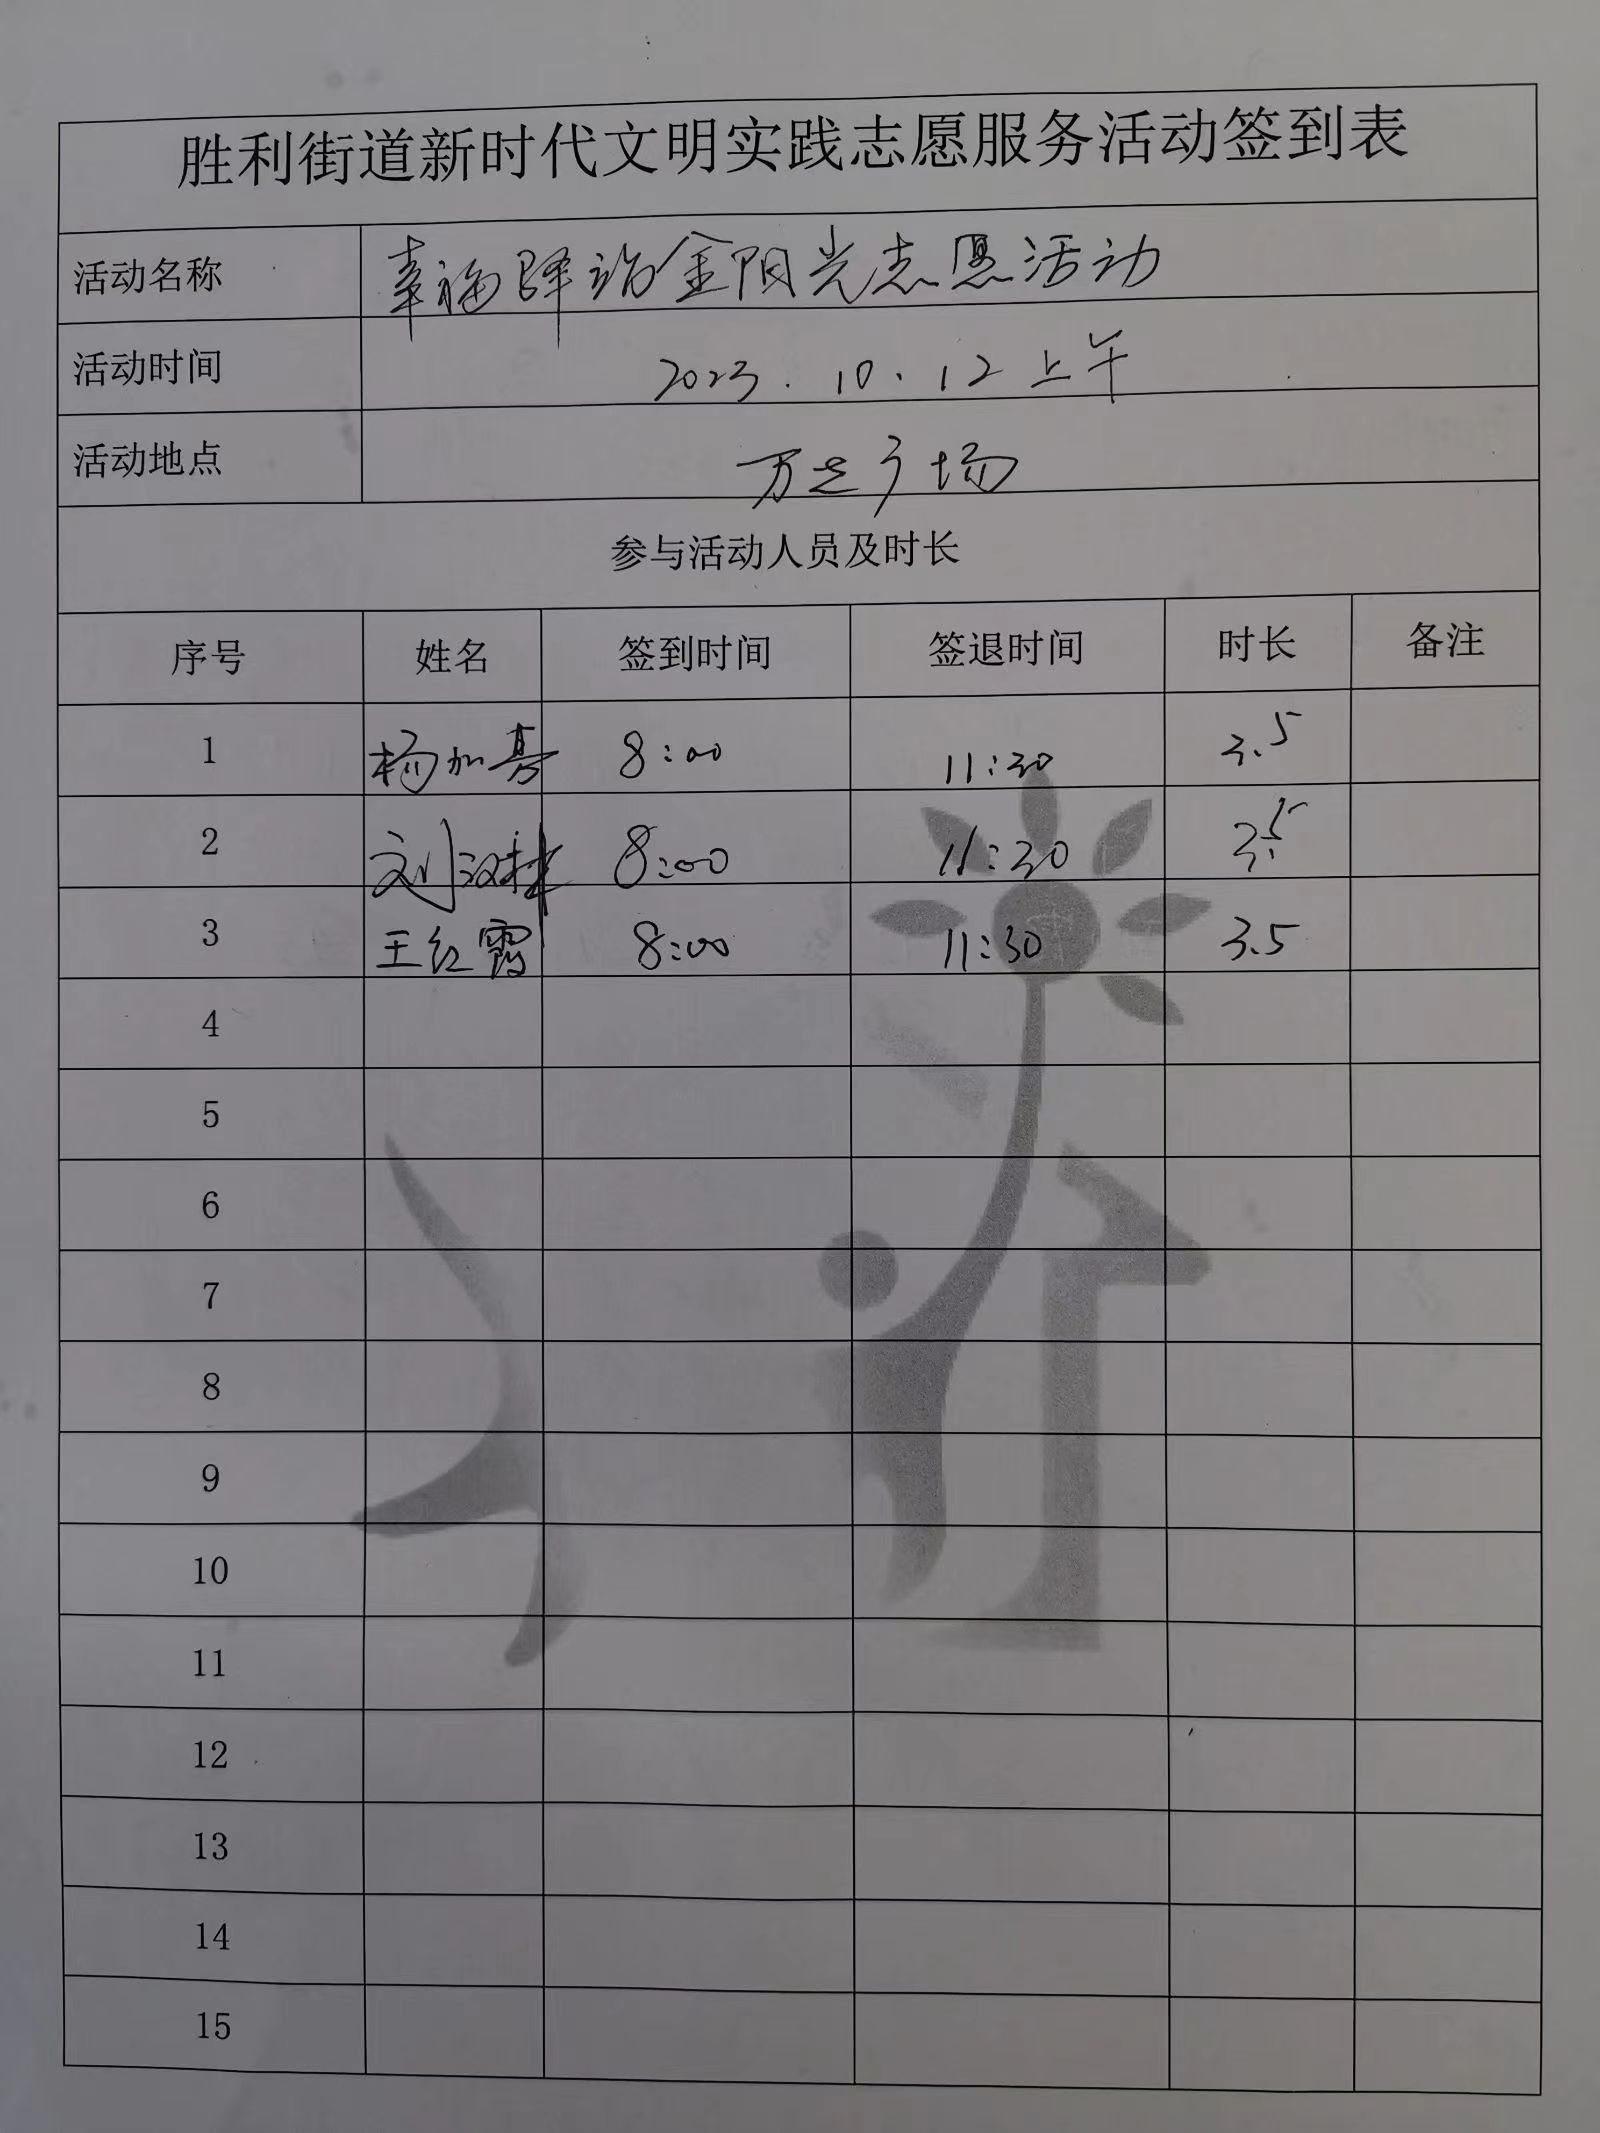 胜利街道新时代文明实践志愿服务活动签到表
活动名称 幸福驿站金阳光志愿活动
活动时间 2023.10.12上午
活动地点 万达广场
参与活动人员及时长
序号 姓名 签到时间 签退时间 时长 备注
1 杨加 8:00 11:30 3.5
2 刘汉林 8:00 11:30 3.5
3 王红霞 8:00 11:30 3.5
4
5
6
7
8
9
10
11
12
13
14
15